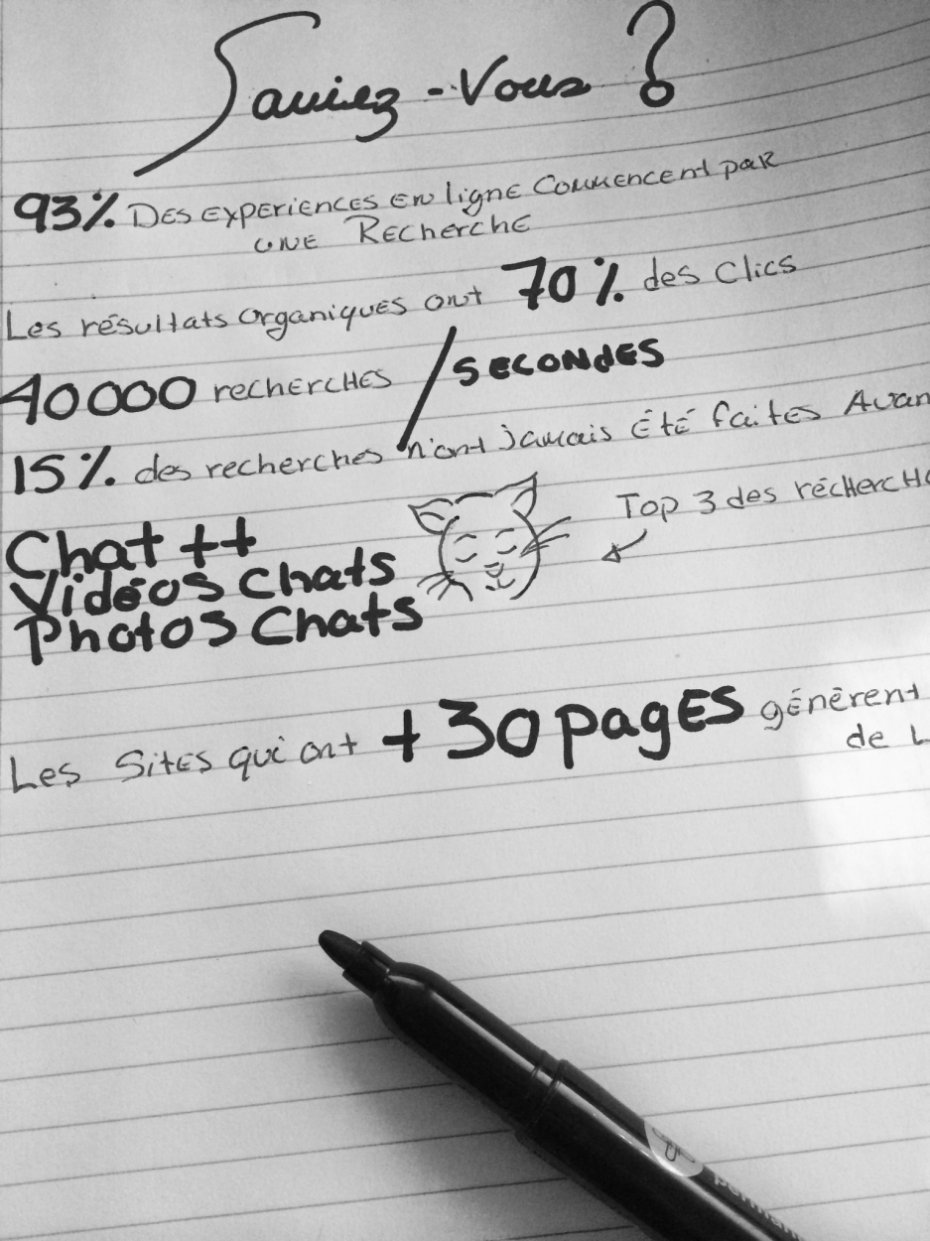 Saviez-Vous ?
93% Des experiences en ligne commencent par
une Recherche
Les résultats organiques ont 70% des clics
40000 recherches / secondes
15% des recherches n'ont jamais été faites Avan
Top 3 des recherche
Chat ++
Vidéos Chats
Photos Chats
Les Sites qui ont +30 pages génèrent
de L
perman